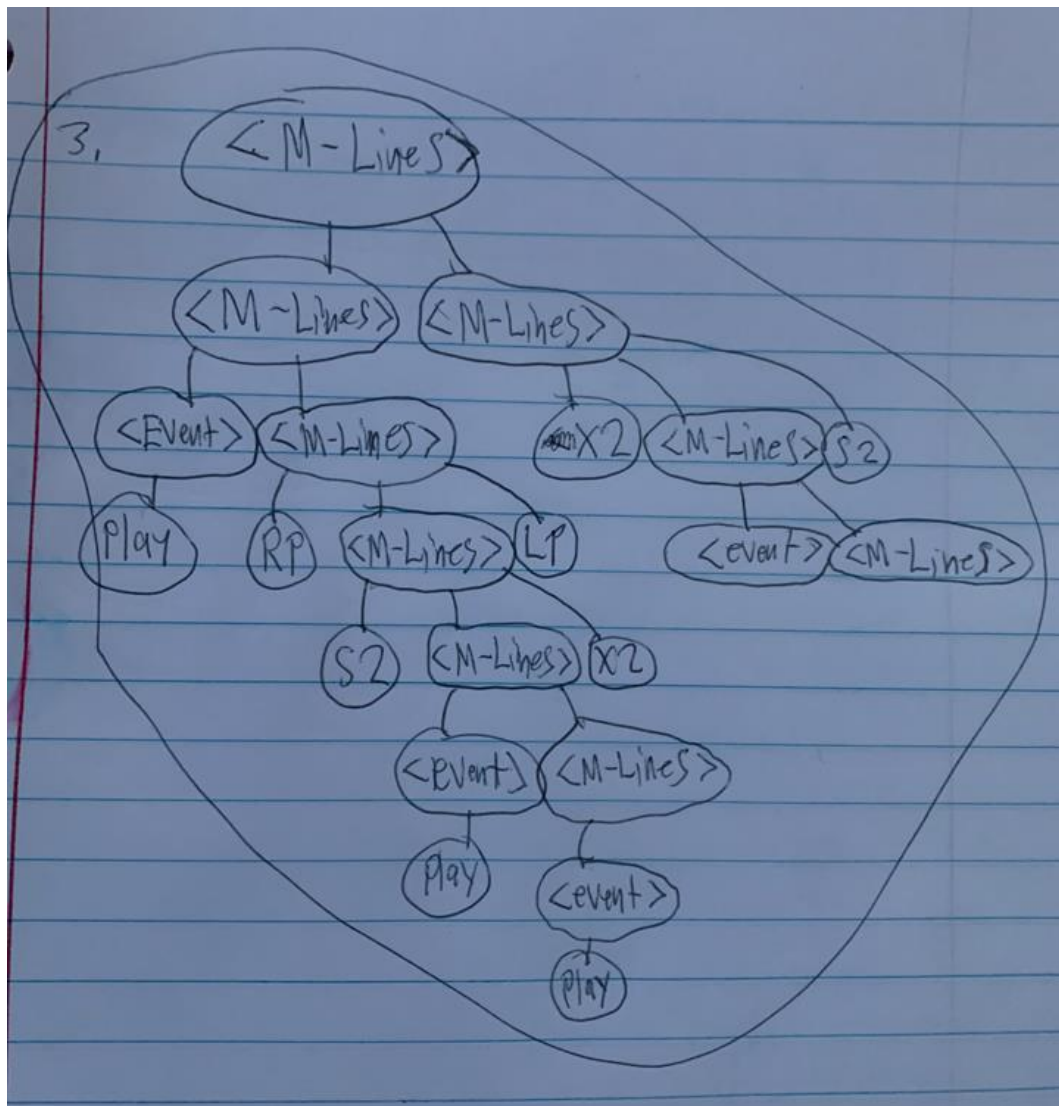 3.
<M-Lines>
<M-Lines> <M-Lines>
<Event> <M-Lines> X2 <M-Lines> S2
Play RP <M-Lines> LP <event> <M-Lines>
S2 <M-Lines> X2
<event> <M-Lines>
Play <event>
Play